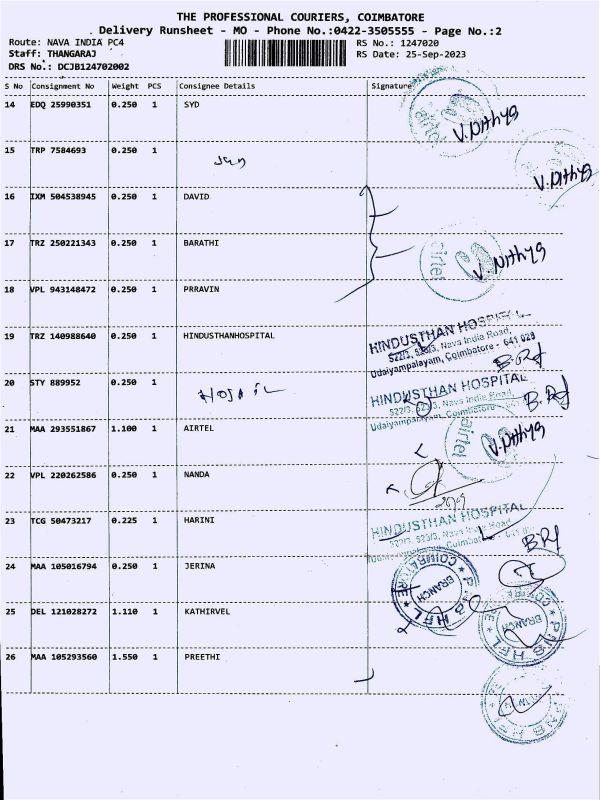 THE PROFESSIONAL COURIERS, COIMBATORE
Delivery Runsheet - MO - Phone No.:0422-3505555 - Page No.:2
Route: NAVA INDIA PC4 RS No.: 1247020
Staff: THANGARAJ RS Date: 25-Sep-2023
DRS No.: DCJB124702002
S No Consignment No Weight PCS Consignee Details Signature
14 EDQ 25990351 0.250 1 SYD
airtel V. Nithya
15 TRP 7584693 0.250 1
V. Nithya
16 IXM 504538945 0.250 1 DAVID
17 TRZ 250221343 0.250 1 BARATHI
airtel V. Nithya
18 VPL 943148472 0.250 1 PRRAVIN
19 TRZ 140988640 0.250 1 HINDUSTHANHOSPITAL
HINDUSTHAN HOSPITAL
522/3, 523/3, Nava India Road,
Udaiyampalayam, Coimbatore - 641 028
20 STY 889952 0.250 1
HINDUSTHAN HOSPITAL
522/3, 523/3, Nava India Road,
Udaiyampalayam, Coimbatore
21 MAA 293551867 1.100 1 AIRTEL
airtel V. Nithya
22 VPL 220262586 0.250 1 NANDA
23 TCG 50473217 0.225 1 HARINI
HINDUSTHAN HOSPITAL
522/3, 523/3, Nava India Road
24 MAA 105016794 0.250 1 JERINA
COIMBATORE BRANCH ★ P N B H F L ★
25 DEL 121028272 1.110 1 KATHIRVEL
BRANCH P N B H F L ★
26 MAA 105293560 1.550 1 PREETHI